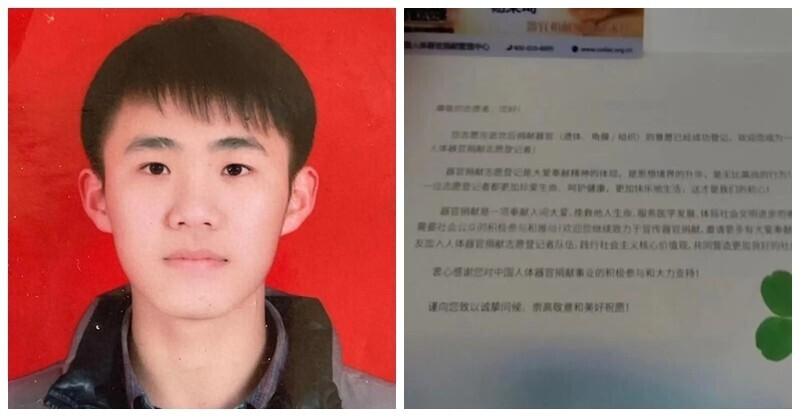 国人体器官捐献管理中心 400-610-8895 www.codac.org.cn
尊敬的志愿者，您好！
您志愿在逝世后捐献器官（遗体、角膜/组织）的意愿已经成功登记，欢迎您成为一
人体器官捐献志愿登记者！
器官捐献志愿登记是大爱奉献精神的体现，是思想境界的升华，是无比高尚的行为！
一位志愿登记者都更加珍爱生命，呵护健康，更加快乐地生活，这才是我们的初心！
器官捐献是一项奉献人间大爱，挽救他人生命，服务医学发展，体现社会文明进步的
需要社会公众的积极参与和推动！欢迎您继续致力于宣传器官捐献，邀请更多有大爱奉献
友加入人体器官捐献志愿登记者队伍，践行社会主义核心价值观，共同营造更加良好的社
衷心感谢您对中国人体器官捐献事业的积极参与和大力支持！
谨向您致以诚挚问候、崇高敬意和美好祝愿！